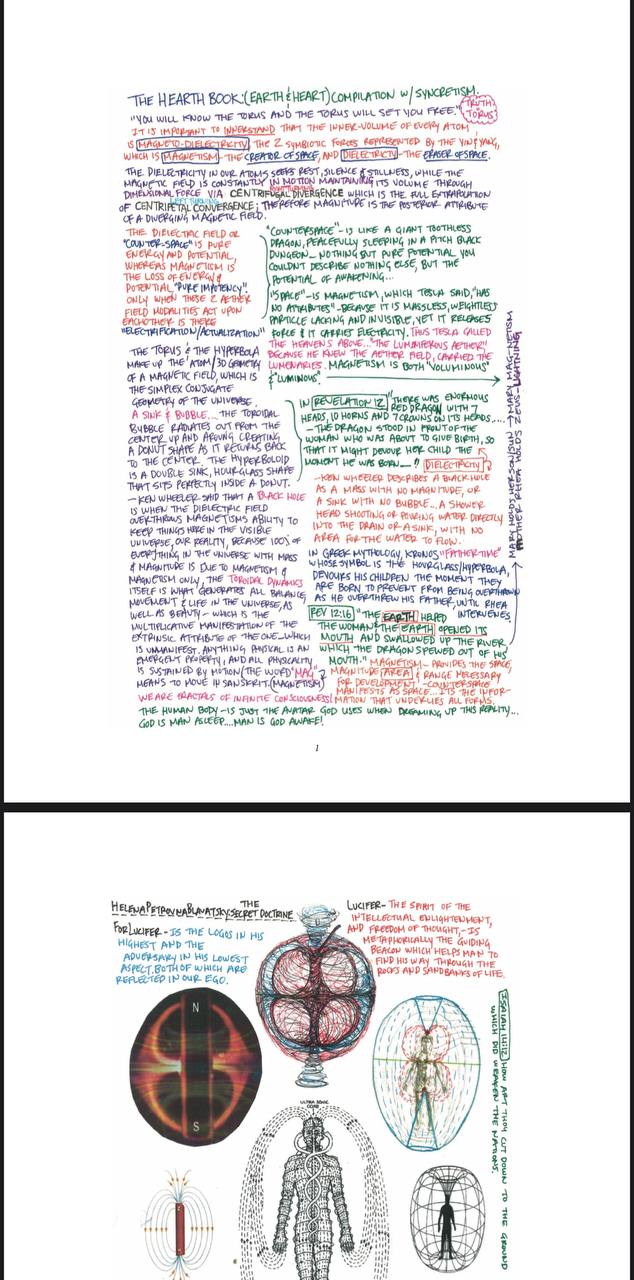 THE HEARTH BOOK:(EARTH & HEART) COMPILATION W/ SYNCRETISM.
"YOU WILL KNOW THE TORUS AND THE TORUS WILL SET YOU FREE."
TRUTH = TORUS
IT IS IMPORTANT TO INNERSTAND THAT THE INNER-VOLUME OF EVERY ATOM
IS MAGNETO-DIELECTRICITY, THE 2 SYMBIOTIC FORCES REPRESENTED BY THE YIN & YANG,
WHICH IS MAGNETISM-THE CREATOR OF SPACE, AND DIELECTRICITY-THE ERASER OF SPACE.
THE DIELECTRICITY IN OUR ATOMS SEEKS REST, SILENCE & STILLNESS, WHILE THE
MAGNETIC FIELD IS CONSTANTLY IN MOTION MANTAINING ITS VOLUME THROUGH
DIMENSIONAL FORCE VIA CENTRIFUGAL DIVERGENCE WHICH IS THE FULL EXTRAPOLATION
LEFT TURNING
OF CENTRIPETAL CONVERGENCE; THEREFORE MAGNITUDE IS THE POSTERIOR ATTRIBUTE
OF A DIVERGING MAGNETIC FIELD.
THE DIELECTRIC FIELD OR
"COUNTER-SPACE" IS PURE
ENERGY AND POTENTIAL,
WHEREAS MAGNETISM IS
THE LOSS OF ENERGY &
POTENTIAL "PURE IMPOTENCY".
ONLY WHEN THESE 2 AETHER
FIELD MODALITIES ACT UPON
EACHOTHER IS THERE
"ELECTRIFICATION/ACTUALIZATION"
"COUNTERSPACE"-IS LIKE A GIANT TOOTHLESS
DRAGON, PEACEFULLY SLEEPING IN A PITCH BLACK
DUNGEON_ NOTHING BUT PURE POTENTIAL YOU
COULDNT DESCRIBE NOTHING ELSE, BUT THE
POTENTIAL OF AWAKENING...
"SPACE"-IS MAGNETISM, WHICH TESLA SAID, "HAS
NO ATTRIBUTES"-BECAUSE IT IS MASSLESS, WEIGHTLESS
PARTICLE LACKING AND INVISIBLE, YET IT RELEASES
FORCE & IT CARRIES ELECTRICITY. THUS TESLA CALLED
THE HEAVENS ABOVE... "THE LUMINIFEROUS AETHER"
BECAUSE HE KNEW THE AETHER FIELD, CARRIED THE
LUMENARIES. MAGNETISM IS BOTH "VOLUMINOUS"
& "LUMINOUS".
THE TORUS & THE HYPERBOLA
MAKE UP THE ATOM/3D GEOMETRY
OF A MAGNETIC FIELD, WHICH IS
THE SIMPLEX CONJUGATE
GEOMETRY OF THE UNIVERSE.
A SINK & BUBBLE... THE TOROIDAL
BUBBLE RADIATES OUT FROM THE
CENTER UP AND AROUND CREATING
A DONUT SHAPE AS IT RETURNS BACK
TO THE CENTER. THE HYPERBOLOID
IS A DOUBLE SINK, HOURGLASS SHAPE
THAT SITS PERFECTLY INSIDE A DONUT.
-KEN WHEELER SAID THAT A BLACK HOLE
IS WHEN THE DIELECTRIC FIELD
OVERTHROWS MAGNETISMS ABILITY TO
KEEP THINGS HERE IN THE VISIBLE
UNIVERSE, OUR REALITY, BECAUSE 100% OF
EVERYTHING IN THE UNIVERSE WITH MASS
& MAGNITUDE IS DUE TO MAGNETISM &
MAGNETISM ONLY, THE TOROIDAL DYNAMICS
ITSELF IS WHAT GENERATES ALL BALANCE,
MOVEMENT & LIFE IN THE UNIVERSE, AS
WELL AS BEAUTY-WHICH IS THE
MULTIPLICATIVE MANIFESTATION OF THE
EXTRINSIC ATTRIBUTE OF THE ONE...WHICH
IS UNMANIFEST. ANYTHING PHYSICAL IS AN
EMERGENT PROPERTY, AND ALL PHYSICALITY
IS SUSTAINED BY MOTION (THE WORD "MAG"
MEANS TO MOVE IN SANSKRIT. (MAGNETISM)
IN REVELATION 12, "THERE WAS ENORMOUS
RED DRAGON WITH 7
HEADS, 10 HORNS AND 7 CROWNS ON ITS HEADS....
-THE DRAGON STOOD IN FRONT OF THE
WOMAN WHO WAS ABOUT TO GIVE BIRTH, SO
THAT IT MIGHT DEVOUR HER CHILD THE
MOMENT HE WAS BORN_" DIELECTRICITY
-KEN WHEELER DESCRIBES A BLACKHOLE
AS A MASS WITH NO MAGNITUDE, OR
A SINK WITH NO BUBBLE... A SHOWER
HEAD SHOOTING OR POURING WATER DIRECTLY
INTO THE DRAIN OR A SINK, WITH NO
AREA FOR THE WATER TO FLOW.
IN GREEK MYTHOLOGY, KRONOS "FATHER-TIME"
WHOSE SYMBOL IS THE HOURGLASS/HYPERBOLA,
DEVOURS HIS CHILDREN THE MOMENT THEY
ARE BORN TO PREVENT FROM BEING OVERTHROWN
AS HE OVERTHREW HIS FATHER, UNTIL RHEA
INTERVENES.
REV 12:16 "THE EARTH HELPED
THE WOMAN & THE EARTH OPENED ITS
MOUTH AND SWALLOWED UP THE RIVER,
WHICH THE DRAGON SPEWED OUT OF HIS
MOUTH." MAGNETISM-PROVIDES THE SPACE,
MAGNITUDE (AREA) & RANGE NECESSARY
FOR DEVELOPMENT!-COUNTERSPACE
MANIFESTS AS SPACE...ITS THE INFOR-
MATION THAT UNDERLIES ALL FORMS.
MARY HOLDS HER SON/SUN → MARY MAG-NETISM
MOTHER RHEA HOLDS ZEUS-LIGHTNING
WE ARE FRACTALS OF INFINITE CONSCIOUSNESS!
THE HUMAN BODY-IS JUST THE AVATAR GOD USES WHEN DREAMING UP THIS REALITY...
GOD IS MAN ASLEEP....MAN IS GOD AWAKE!
1
HELENA PETROVNA BLAVATSKY: THE SECRET DOCTRINE
FOR LUCIFER-IS THE LOGOS IN HIS
HIGHEST AND THE
ADVERSARY IN HIS LOWEST
ASPECT. BOTH OF WHICH ARE
REFLECTED IN OUR EGO.
LUCIFER-THE SPIRIT OF THE
INTELLECTUAL ENLIGHTENMENT,
AND FREEDOM OF THOUGHT,-IS
METAPHORICALLY THE GUIDING
BEACON WHICH HELPS MAN TO
FIND HIS WAY THROUGH THE
ROCKS AND SANDBANKS OF LIFE.
N
S
ISAIAH 14:12 HOW ART THOU CUT DOWN TO THE GROUND
WHICH DID WEAKEN THE NATIONS.
ULTRA SONIC
CORE